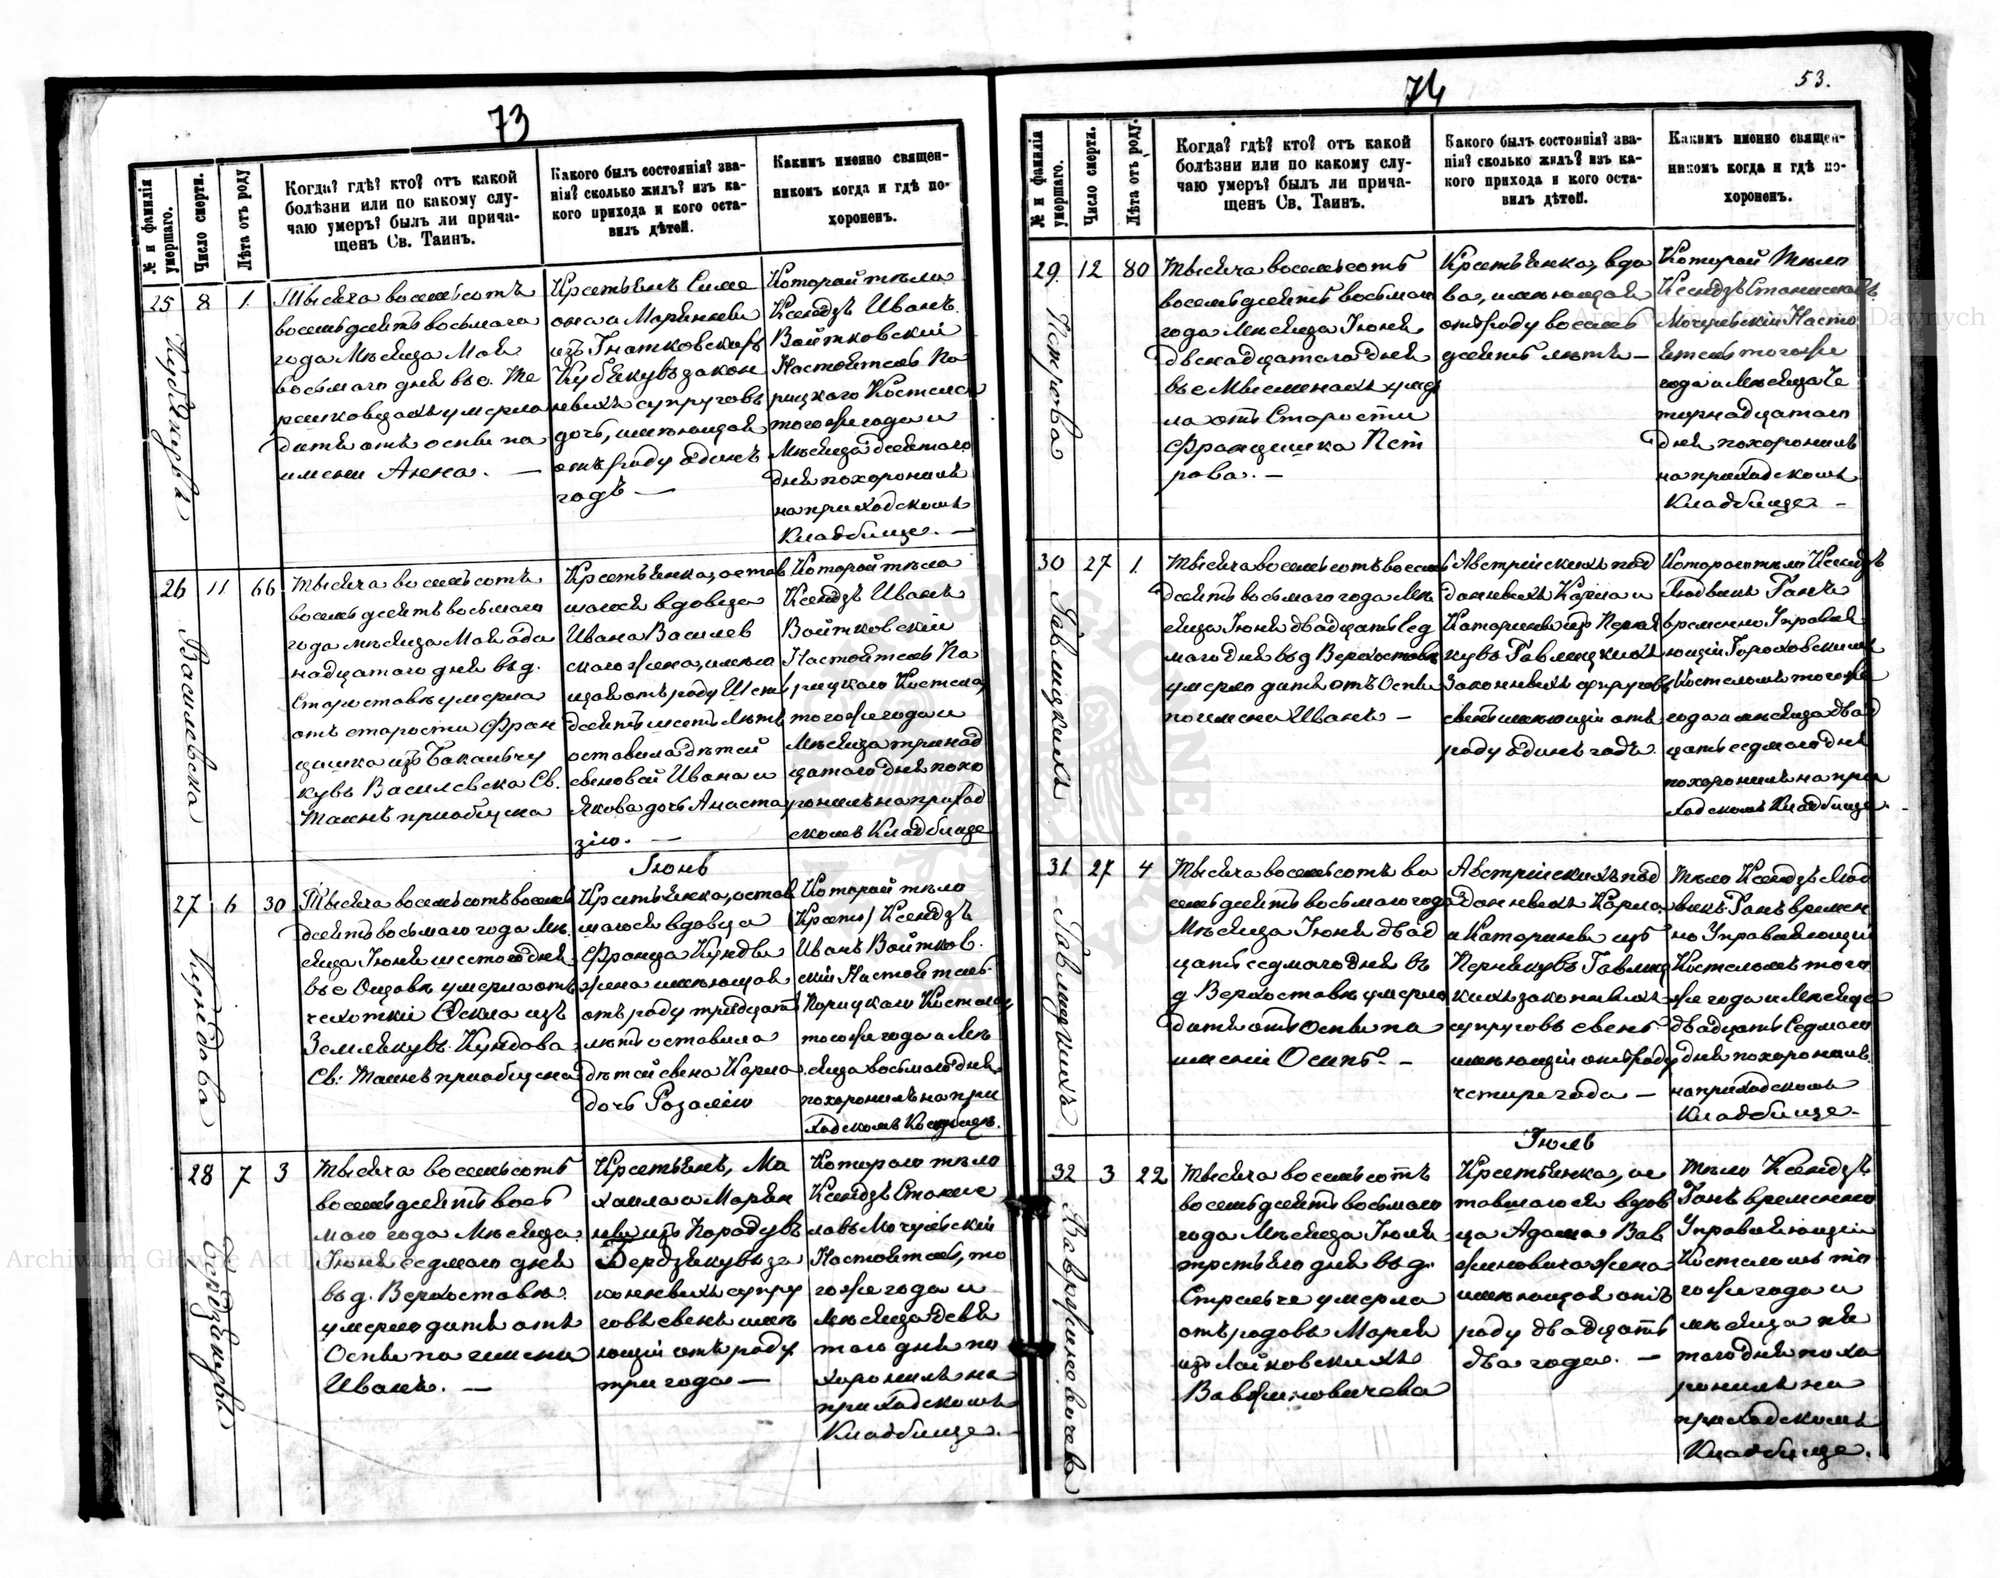 73
№ и фамилія умершаго.
Число смерти.
Лѣта отъ роду
Когда? гдѣ? кто? отъ какой
болѣзни или по какому слу-
чаю умеръ? былъ ли прича-
щенъ Св. Таинъ.
Какого былъ состоянія? зва-
нія? сколько жилъ? изъ ка-
кого прихода и кого оста-
вилъ дѣтей.
Какимъ именно священ-
никомъ когда и гдѣ по-
хороненъ.
25
8
1
Тысяча восемьсотъ
восемьдесятъ восьмаго
года Мѣсяца Мая
восьмаго дня въ с. Те
решковцахъ умерло
дитя отъ оспы по
имени Анна. —
Крестьянъ Симе
она и Марянны
изъ Гнатковскихъ
Кубякувъ закон
ныхъ супруговъ
дочь, имѣющая
отъ роду одинъ
годъ —
Которой тѣло
Ксендзъ Иванъ
Войтковскій
Настоятель По
рицкаго Костела
того же года и
Мѣсяца десятаго
дня похоронилъ
на приходскомъ
Кладбище. —
26
11
66
Василевска
Тысяча восемьсотъ
восемьдесятъ восьмаго
года мѣсяца Мая оди
надцатаго дня въ д.
Староставѣ умерла
отъ старости Фран
цишка изъ
кувъ Василевска Св.
Таинъ приобщена
Крестьянка, остав
шагося вдовца
Ивана Василев
скаго жена, имѣю
щая отъ роду Шесть
десятъ шесть лѣтъ
оставила дѣтей
сыновой Ивана и
Якова дочь Анаста
зію. —
Которой тѣло
Ксендзъ Иванъ
Войтковскій
Настоятель По
рицкаго Костела
того же года и
Мѣсяца тринад
цатаго дня похо
ронилъ на приход
скомъ Кладбище
Іюнь
27
6
30
Кундова
Тысяча восемьсотъ восемь
десятъ восьмаго года Мѣ
сяца Іюня шестого дня
въ с Ощовѣ умерла отъ
чехоткіи Фекла изъ
Землякувъ Кундова
Св: Таинъ приобщена
Крестьянка, остав
шагося вдовца
Франца Кунды
жена имѣющая
отъ роду тридцать
лѣтъ оставила
дѣтей сына Карла
дочь Розалію
Которой тѣло
Ксендзъ
Иванъ Войтков
скій Настоятель
Порицкаго Костела
того же года и Мѣ
сяца восьмаго дня
похоронилъ на при
ходскомъ Кладбищѣ.
28
7
3
Тысяча восемьсотъ
восемьдесятъ вось
маго года Мѣсяца
Іюня седмаго дня
въ д. Верхоставѣ
умерло дитя отъ
Оспы по имени
Иванъ. —
Крестьянъ, Ми
хаила и Марян
ны изъ Король
Бердзякувъ за
конныхъ супру
говъ сынъ имѣ
ющій отъ роду
три года —
Котораго тѣло
Ксендзъ Станис
лавъ Мочульскій
Настоятель, то
го же года и
мѣсяца девя
таго дня по
хоронилъ на
приходскомъ
Кладбище.
74
53.
№ и фамилія умершаго.
Число смерти.
Лѣта отъ роду.
Когда? гдѣ? кто? отъ какой
болѣзни или по какому слу-
чаю умеръ? былъ ли прича-
щенъ Св. Таинъ.
Какого былъ состоянія? зва-
нія? сколько жилъ? изъ ка-
кого прихода и кого оста-
вилъ дѣтей.
Какимъ именно священ-
никомъ когда и гдѣ по-
хороненъ.
29
12
80
Петрова
Тысяча восемьсотъ
восемьдесятъ восьмаго
года Мѣсяца Іюня
двенадцатаго дня
въ с умер
ла отъ Старости
Францишка Пет
рова. —
Крестьянка, вдо
ва, имѣющая
отъ роду восемь
десятъ лѣтъ —
Которой Тѣло
Ксендзъ Станиславъ
Мочульскій Насто
ятель того же
года и Мѣсяца Че
тырнадцатаго
дня похоронилъ
на приходскомъ
Кладбище —
30
27
1
Гавлицкихъ
Тысяча восемьсотъ восемь
десятъ восьмаго года Мѣ
сяца Іюня двадцать сед
маго дня въ д Верхоставѣ
умерло дитя отъ Оспы
по имени Иванъ —
Австрійскихъ под
данныхъ Карла и
Катарины изъ Перня
кувъ Гавлицкихъ
Законныхъ супруговъ
сынъ имѣющій отъ
роду одинъ годъ
Котораго тѣло Ксендзъ
Людвикъ Ганъ
временно Управля
ющій Гороховскимъ
Костеломъ того же
года и мѣсяца двад
цать седмаго дня
похоронилъ на при
ходскомъ Кладбище.
31
27
4
Гавлицкихъ
Тысяча восемьсотъ во
семьдесятъ восьмаго года
Мѣсяца Іюня двад
цать седмаго дня въ
д Верхоставѣ умерло
дитя отъ Оспы по
имени Осипъ. —
Австрійскихъ под
данныхъ Карла
и Катарины изъ
Пернякувъ Гавлиц
кихъ законныхъ
супруговъ сынъ
имѣющій отъ роду
четыре года —
Тѣло Ксендзъ Люд
викъ Ганъ времен
но Управляющій
Костеломъ того
же года и Мѣсяца
двадцать Седмаго
дня похоронилъ
на приходскомъ
Кладбище —
Іюль
32
3
22
Тысяча восемьсотъ
восемьдесятъ восьмаго
года Мѣсяца Іюля
третьяго дня въ д.
Стрельче умерла
отъ родовъ Марья
изъ Лайковскихъ
Вавжиновичева
Крестьянка, ос
тавшагося вдов
ца Адама Вав
жиновича жена
имѣющая отъ
роду двадцать
два года. —
Тѣло Ксендзъ
Ганъ временно
Управляющій
Костеломъ то
го же года и
мѣсяца пя
таго дня похо
ронилъ на
приходскомъ
Кладбище.
Archiwum Główne Akt Dawnych
Archiwum Główne Akt Dawnych